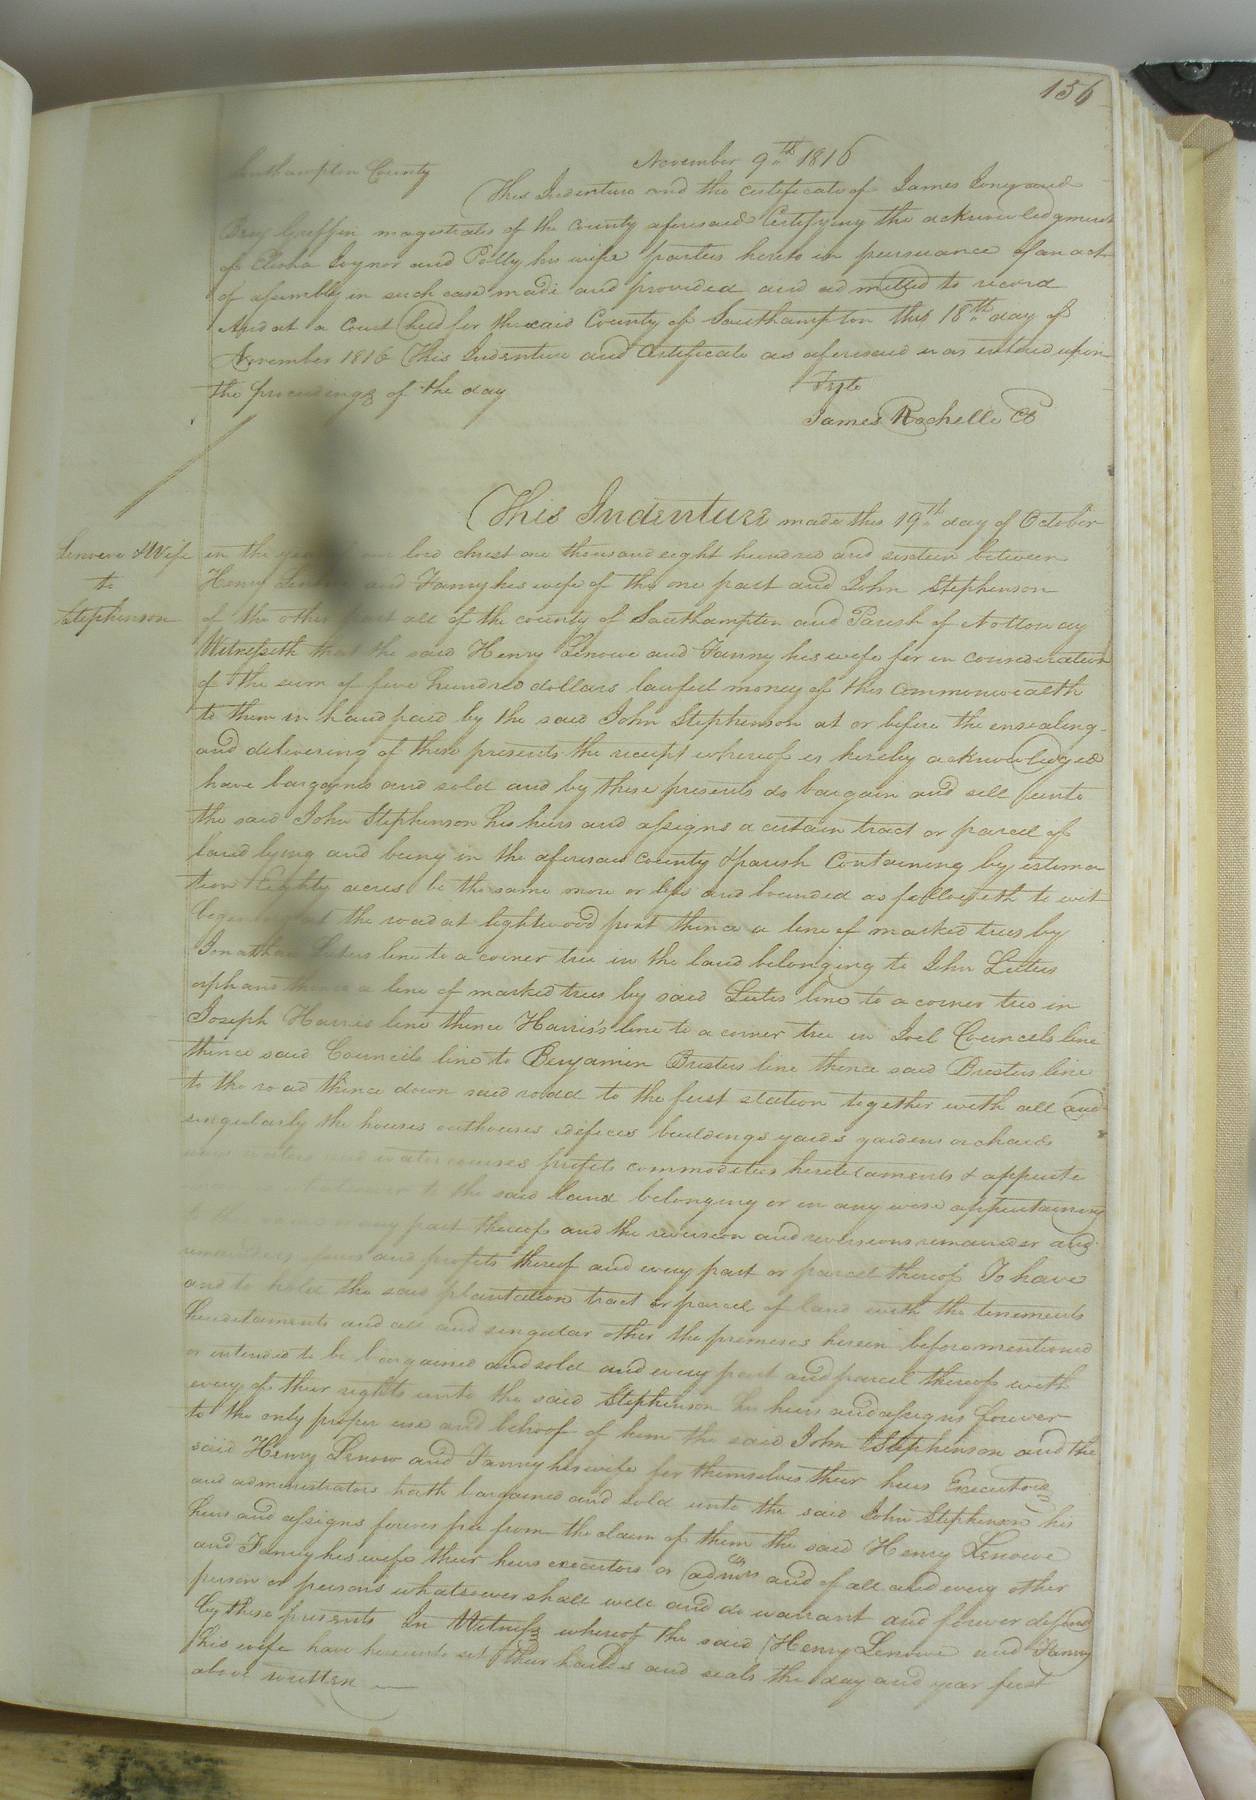 156
Southampton County November 9th 1816
This Indenture and the certificate of James Jones and
Benj Griffin magistrates of the County aforesaid Certifying the acknowledgment
of Elisha Joynor and Polly his wife parties hereto in persuance of an act
of assembly in such case made and provided and admitted to record
And at a Court held for the said County of Southampton this 18th day of
November 1816 This Indenture and Certificate as aforesaid was entered upon
the proceedings of the day Teste
James Rochelle
This Indenture made this 19th day of October
Lenowe & Wife
to
Stephenson
in the year of our lord christ one thousand eight hundred and sixteen between
Henry Lenowe and Fanny his wife of the one part and John Stephenson
of the other part all of the county of Southampton and Parish of Nottoway
Witnesseth that the said Henry Lenowe and Fanny his wife for in consideration
of the sum of five hundred dollars lawful money of this Commonwealth
to them in hand paid by the said John Stephenson at or before the ensealing
and delivering of these presents the receipt whereof is hereby acknowledged
have bargained and sold and by these presents do bargain and sell unto
the said John Stephenson his heirs and assigns a certain tract or parcel of
land lying and being in the aforesaid County & parish Containing by estima
tion Eighty acres be the same more or less and bounded as followeth to wit
begining at the road at lightwood post thence a line of marked trees by
Jonathan Luters line to a corner tree in the land belonging to John Luters
orphans thence a line of marked trees by said Luters line to a corner tree in
Joseph Harris line thence Harris's line to a corner tree in Joel Councels line
thence said Councils line to Benjamin Bristers line thence said Bristers line
to the road thence down said roadd to the first station together with all and
singularly the houses outhouses edifices buildings yards gardens orchards
water courses profits commodities hereditaments & appurte
to the said land belonging or in any wise appertaining
any part thereof and the reversion and reversions remainder and
remainders and profits thereof and every part or parcel thereof To have
and to hold the said plantation tract or parcel of land with the tenements
hereditaments and all and singular other the premises herein before mentioned
or intended to be bargained and sold and every part and parcel thereof with
every of their rights unto the said Stephenson his heirs and assigns forever
to the only proper use and behoof of him the said John Stephenson and the
said Henry Lenow and Fanny his wife for themselves their heirs Executors
and administrators hath bargained and sold unto the said John Stephenson his
heirs and assigns forever free from the claim of them the said Henry Lenowe
and Fanny his wife their heirs executors or admrs and of all and every other
person or persons whatsoever shall well and do warrant and forever defend
by these presents In Witness whereof the said Henry Lenowe and Fanny
his wife have hereunto set their hands and seals the day and year first
above written